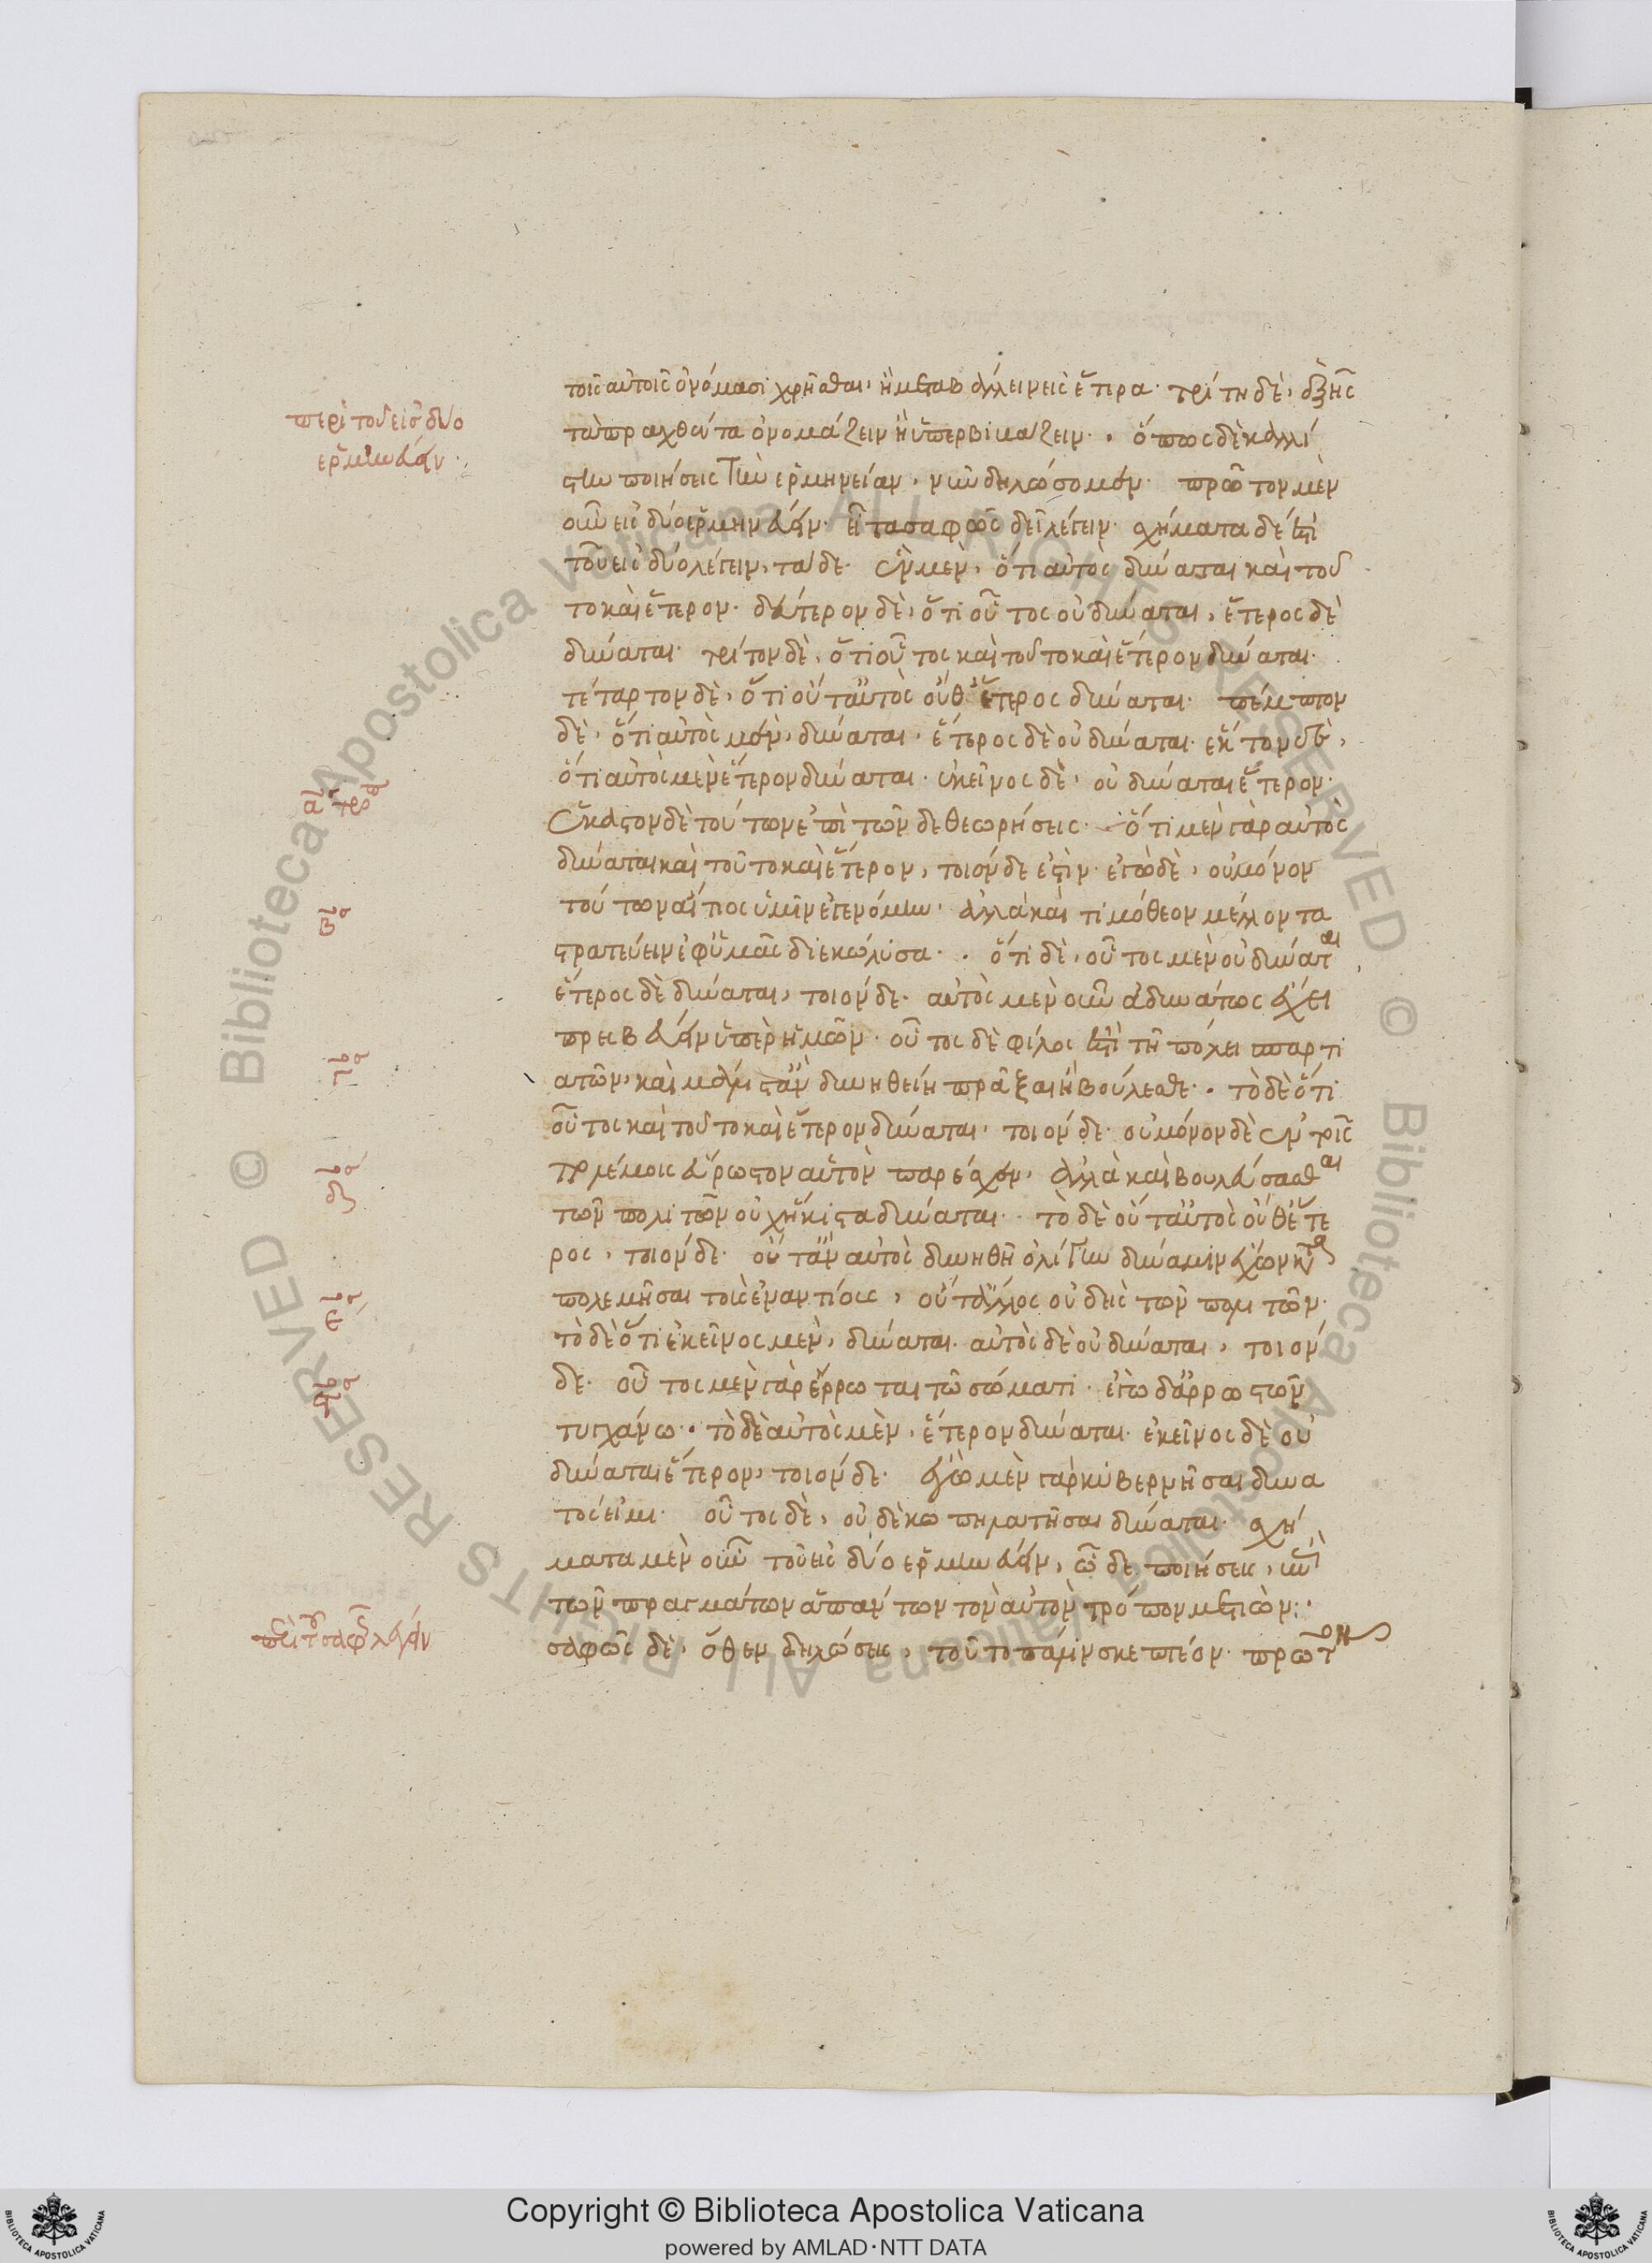 τοῖς αὐτοῖς ὀνόμασι χρῆσθαι, ἢ μεταβάλλειν εἰς ἕτερα· τρίτη δὲ, ἑξῆς
τὰ πραχθέντα ὀνομάζειν ἢ ὑπερβιβάζειν· ὅπως δὲ καλλί
στην ποιήσεις τὴν ἑρμηνείαν, νῦν δηλώσομεν· πρῶτον μὲν
οὖν εἰς δύο ἑρμηνεύειν· εἶτα σαφῶς δεῖ λέγειν· σχήματα δέ ἐστι
τοῦ εἰς δύο λέγειν, τάδε· ἓν μὲν, ὅτι αὐτὸς δύναται καὶ τοῦ
το καὶ ἕτερον· δεύτερον δὲ, ὅτι οὗτος οὐ δύναται, ἕτερος δὲ
δύναται· τρίτον δὲ, ὅτι οὗτος καὶ τοῦτο καὶ ἕτερον δύναται·
τέταρτον δὲ, ὅτι οὔτ' αὐτὸς οὔθ' ἕτερος δύναται· πέμπτον
δὲ, ὅτι αὐτὸς μὲν, δύναται, ἕτερος δὲ οὐ δύναται· ἕκτον δὲ,
ὅτι αὐτὸς μὲν ἕτερον δύναται· ἐκεῖνος δὲ, οὐ δύναται ἕτερον·
ἕκαστον δὲ τούτων ἐπὶ τῶνδε θεωρήσεις· ὅτι μὲν γὰρ αὐτὸς
δύναται καὶ τοῦτο καὶ ἕτερον, τοιόνδε ἐστὶν· ἐγὼ δὲ, οὐ μόνον
τούτων αἴτιος ὑμῖν ἐγενόμην, ἀλλὰ καὶ τιμόθεον μέλλοντα
στρατεύειν ἐφ' ὑμᾶς διεκώλυσα· ὅτι δὲ, οὗτος μὲν οὐ δύναται,
ἕτερος δὲ δύναται, τοιόνδε· αὐτὸς μὲν οὖν ἀδυνάτως ἔχει
πρεσβεύειν ὑπὲρ ἡμῶν· οὗτος δὲ φίλος ἐστὶ τῇ πόλει σπαρτι
ατῶν, καὶ μάλιστ' ἂν δυνηθείη πρᾶξαι ἃ βούλεσθε· τὸ δὲ ὅτι
οὗτος καὶ τοῦτο καὶ ἕτερον δύναται, τοιόνδε· οὐ μόνον δὲ ἐν τοῖς
πολέμοις εὔρωστον αὑτὸν παρέσχεν, ἀλλὰ καὶ βουλεύσασθαι
τῶν πολιτῶν οὐχ ἥκιστα δύναται· τὸ δὲ οὔτ' αὐτὸς οὔθ' ἕτε
ρος, τοιόνδε· οὔτ' ἂν αὐτὸς δυνηθῆ ὀλίγην δύναμιν ἔχων κατα
πολεμῆσαι τοὺς ἐναντίους, οὔτ' ἄλλος οὐδεὶς τῶν πολιτῶν·
τὸ δὲ ὅτι ἐκεῖνος μὲν, δύναται· αὐτὸς δὲ οὐ δύναται, τοιόν
δε· οὗτος μὲν γὰρ ἔρρωται τῷ σώματι· ἐγὼ δ' ἀρρωστῶν
τυγχάνω· τὸ δὲ αὐτὸς μὲν, ἕτερον δύναται· ἐκεῖνος δὲ οὐ
δύναται ἕτερον, τοιόνδε· ἐγὼ μὲν γὰρ κυβερνῆσαι δυνα
τός εἰμι· οὗτος δὲ, οὐδὲ κωπηλατῆσαι δύναται· σχή
ματα μὲν οὖν τοῦ εἰς δύο ἑρμηνεύειν, ὧδε ποιήσεις, ἐπὶ
τῶν πραγμάτων ἁπάντων τὸν αὐτὸν τρόπον μετιών:·
σαφῶς δὲ, ὅθεν δηλώσεις, τοῦτο πάλιν σκεπτέον· πρῶτον
περὶ τοῦ εἰς δύο
ἑρμηνεύειν·
β
γ
δ
ε
περὶ τοῦ σαφῶς λέγειν
Copyright © Biblioteca Apostolica Vaticana
powered by AMLAD·NTT DATA